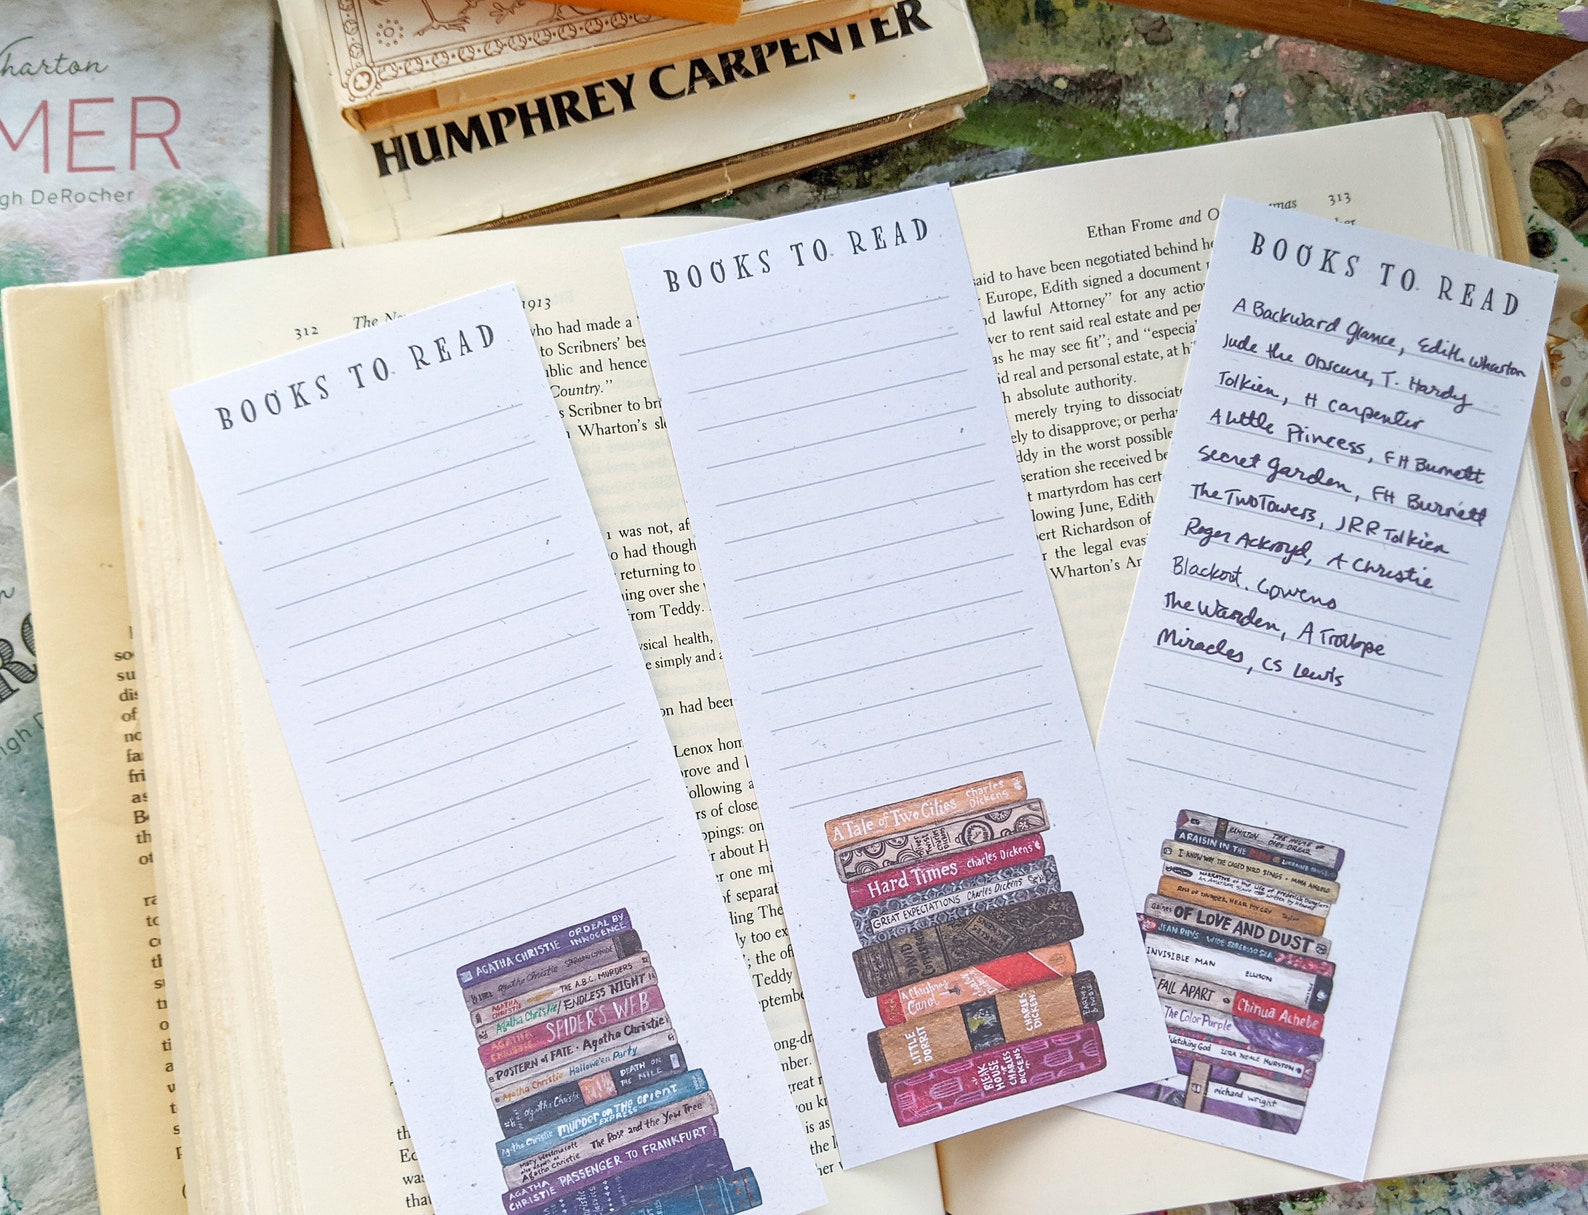 harton
MER
gh DeRocher
HUMPHREY CARPENTER
312
1913
who had made a
to Scribners' bes
blic and hence
Country."
Scribner to bri
Wharton's
was not, af
had though
returning to
ing over she
from Teddy.
health,
e simply and
on had been
Lenox hom
rove and
ollowing a
rs of close
ppings: on
about H
r one mi
of separat
ling The
y too ex
the of
Teddy
ptembe
ong-dr
mber.
great
you kn
is as
the
Ethan Frome and
313
said to have been negotiated behind he
Europe, Edith signed a document
nd lawful Attorney" for any actio
wer to rent said real estate and per
as he may see fit"; and "especial
id real and personal estate, at h
absolute authority.
merely trying to dissociate
ely to disapprove; or perhap
ddy in the worst possible
seration she received be
t martyrdom has cert
lowing June, Edith
ert Richardson of
r the legal evas
Wharton's
BOOKS TO READ
AGATHA CHRISTIE ORDEAL BY INNOCENCE
Agatha Christie
AGATHA CHRISTIE THE A.B.C. MURDERS
Agatha Christie / ENDLESS NIGHT
AGATHA CHRISTIE SPIDER'S WEB
POSTERN of FATE · Agatha Christie
Agatha Christie Hallowe'en Party
Agatha Christie DEATH ON THE NILE
Agatha Christie MURDER ON THE ORIENT EXPRESS
Mary Westmacott also known as Agatha Christie The Rose and the Yew Tree
AGATHA CHRISTIE PASSENGER TO FRANKFURT
BOOKS TO READ
A Tale of Two Cities Charles Dickens
Hard Times Charles Dickens
GREAT EXPECTATIONS CHARLES DICKENS
DAVID
A Christmas Carol
LITTLE DORRIT CHARLES DICKENS
BLEAK HOUSE CHARLES DICKENS
BOOKS TO READ
A Backward Glance, Edith Wharton
Jude the Obscure, T. Hardy
Tolkien, H Carpenter
A Little Princess, FH Burnett
Secret Garden, FH Burnett
The Two Towers, JRR Tolkien
Roger Ackroyd, A Christie
Blackout, Cowens
The Warden, A Trollope
Miracles, CS Lewis
HAMILTON THE HOUSE OF DIES DREAR
A RAISIN IN THE
I KNOW WHY THE CAGED BIRD SINGS · MAYA ANGELOU
NARRATIVE of the LIFE of Frederick Douglass
ROLL OF THUNDER, HEAR MY CRY Taylor
Gaines OF LOVE AND DUST
JEAN RHYS WIDE SARGASSO SEA
INVISIBLE MAN ELLISON
FALL APART Chinua Achebe
The Color Purple
Watching God ZORA NEALE HURSTON
richard wright